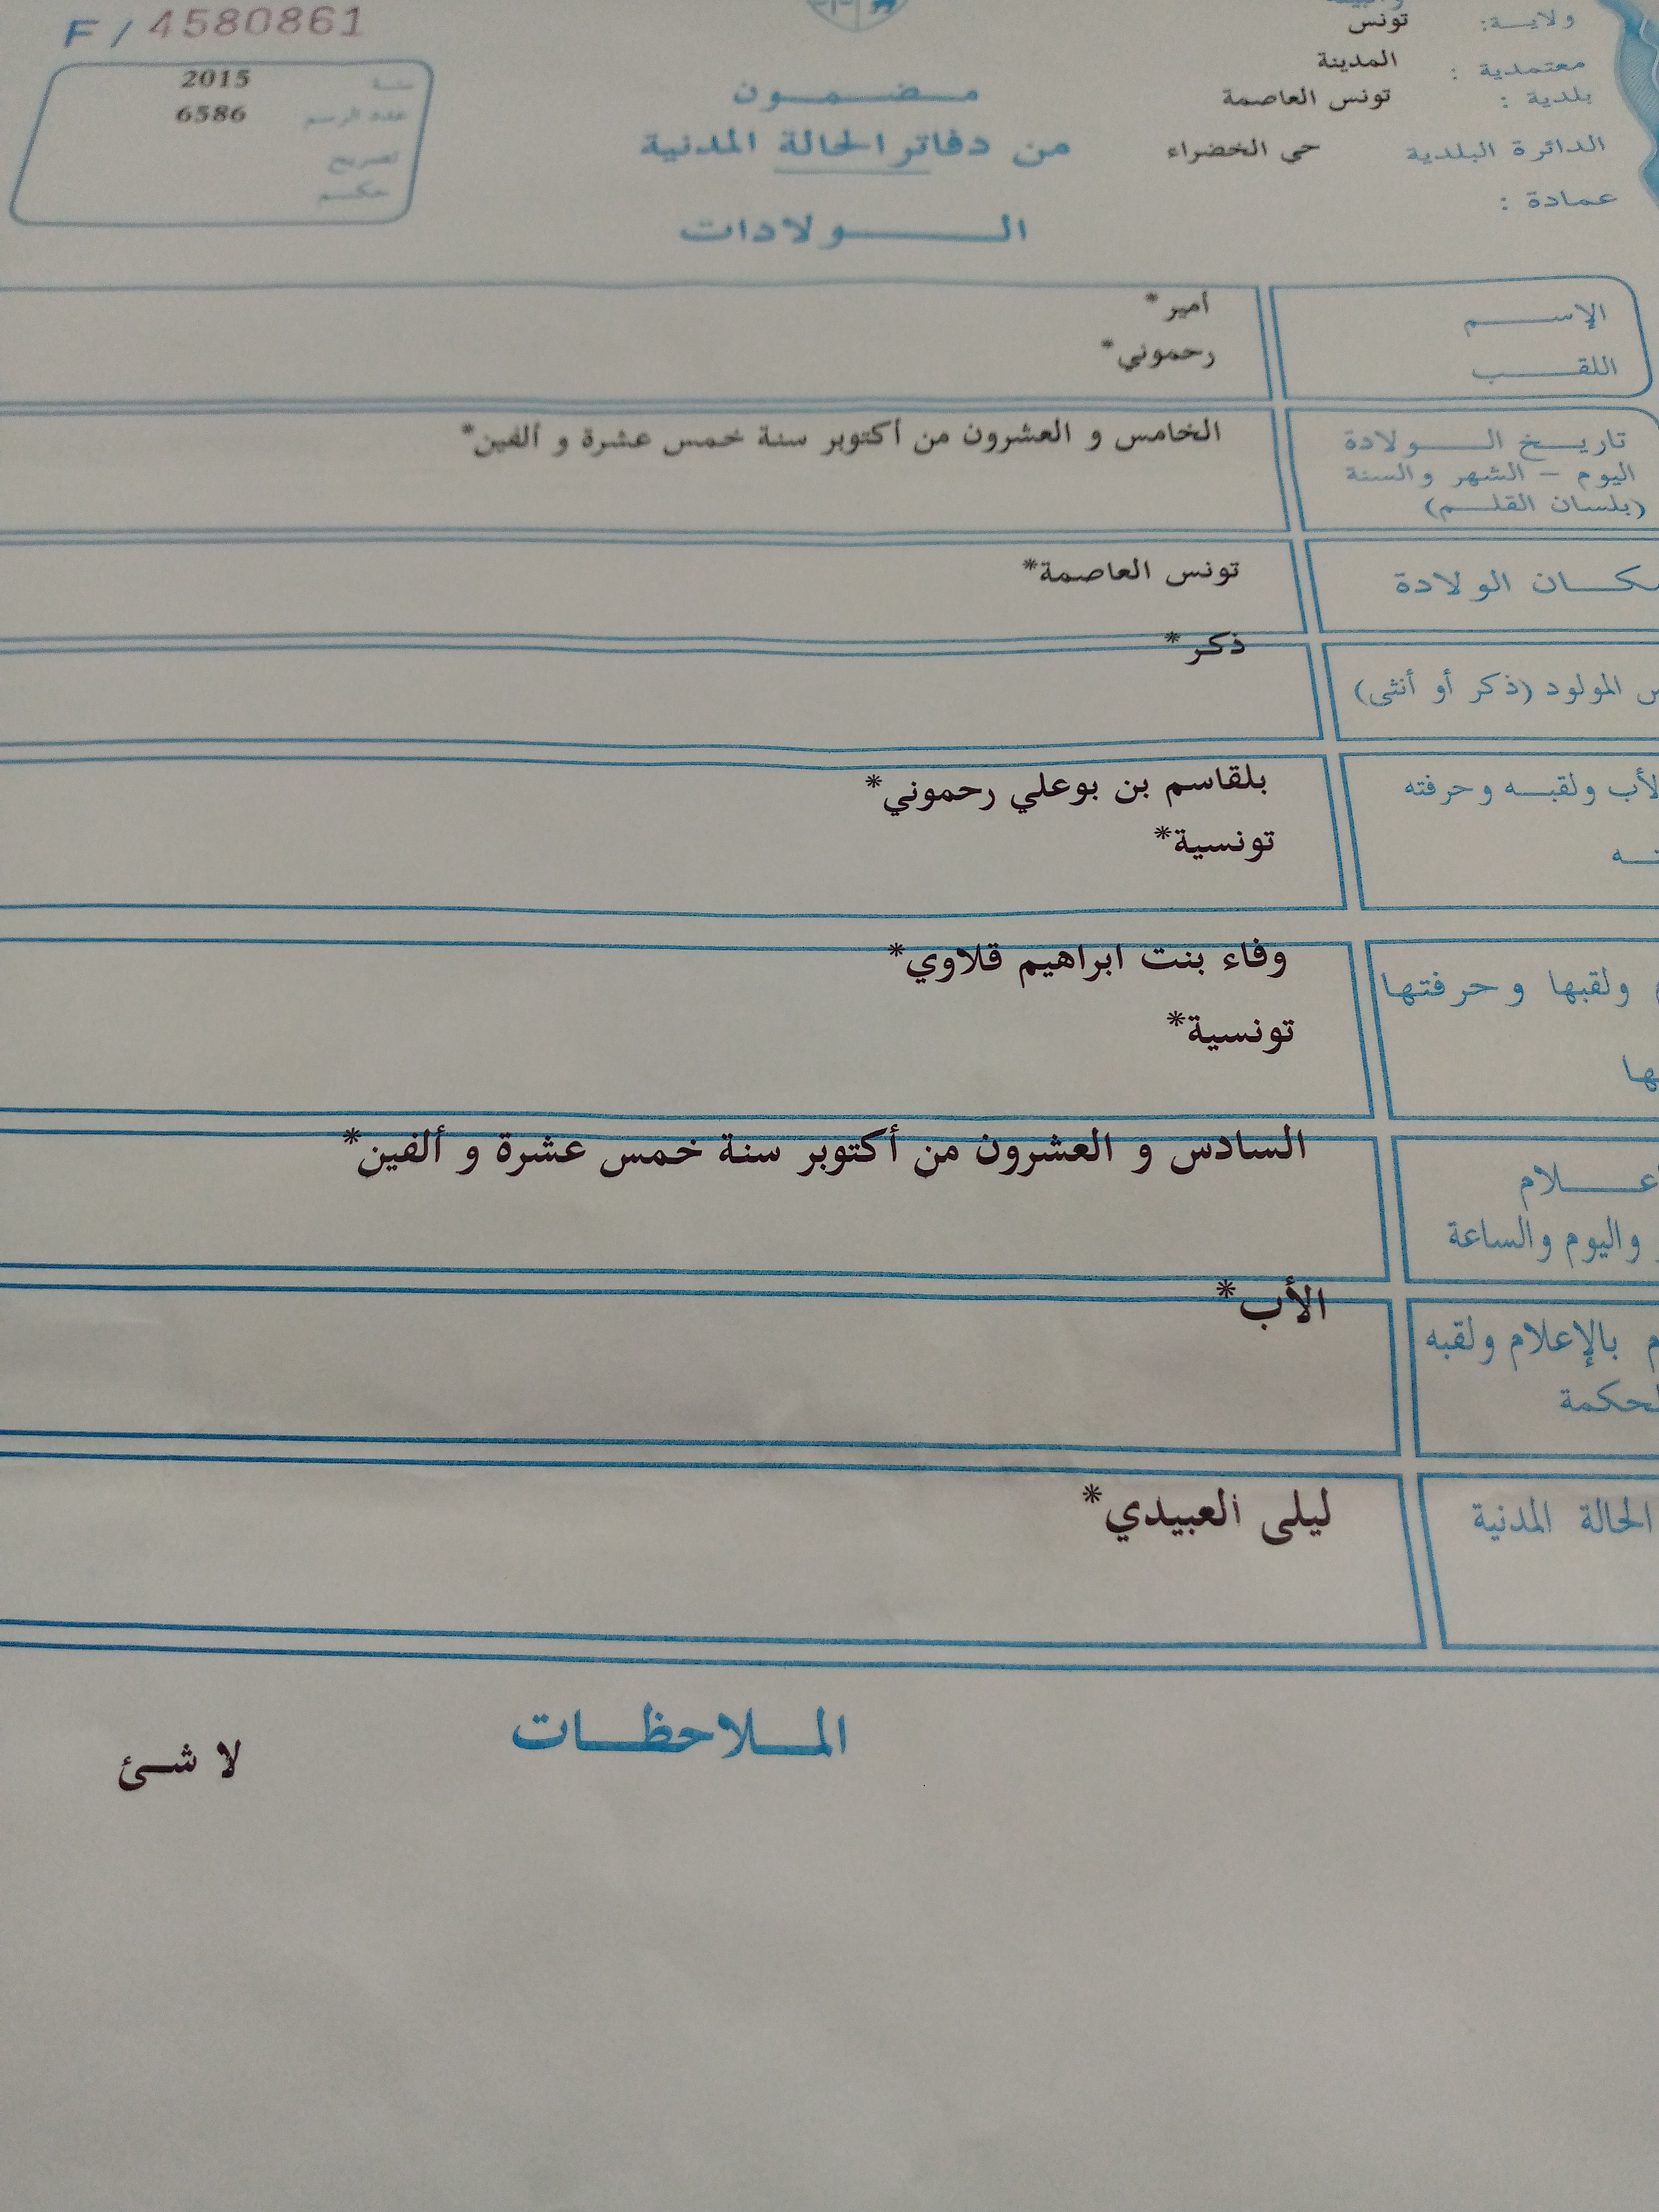 F / 4580861
ولاية: تونس
معتمدية : المدينة
بلدية : تونس العاصمة
الدائرة البلدية حي الخضراء
عمادة :
سنة 2015
عدد الرسم 6586
تصريح
حكم
مضمون
من دفاتر الحالة المدنية
الولادات
الإسم أمير*
اللقب رحموني*
تاريخ الولادة الخامس و العشرون من أكتوبر سنة خمس عشرة و ألفين*
اليوم - الشهر والسنة
(بلسان القلم)
مكان الولادة تونس العاصمة*
ذكر*
المولود (ذكر أو أنثى)
الأب ولقبه وحرفته بلقاسم بن بوعلي رحموني*
تونسية*
ولقبها وحرفتها وفاء بنت ابراهيم قلاوي*
تونسية*
السادس و العشرون من أكتوبر سنة خمس عشرة و ألفين*
واليوم والساعة
الأب*
بالإعلام ولقبه
الحالة المدنية ليلى العبيدي*
الملاحظات
لا شئ